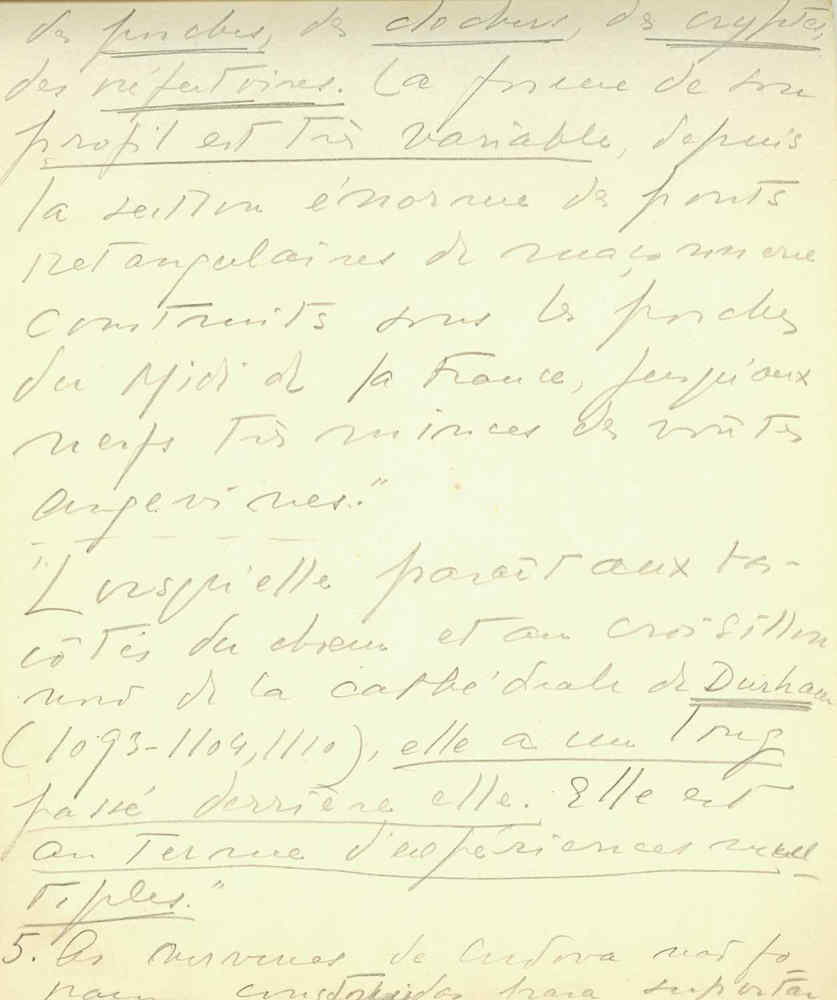 des porches, des clochers, des cryptes,
des réfectoires. La forme de son
profil est très variable, depuis
la section énorme des ponts
retangulaires de maçonnerie
construits sous les porches
du Midi de la France, jusqu'aux
nerfs très minces des voûtes
angevines."
"Lorsqu'elle paraît aux bas-
côtés du choeur et au croisillon
nord de la cathédrale de Durham
(1093-1104, 1110), elle a un long
passé derrière elle. Elle est
au terme d'expériences mul
tiples."
5. As nervuras de Cordova não fo
ram construidas para suportar